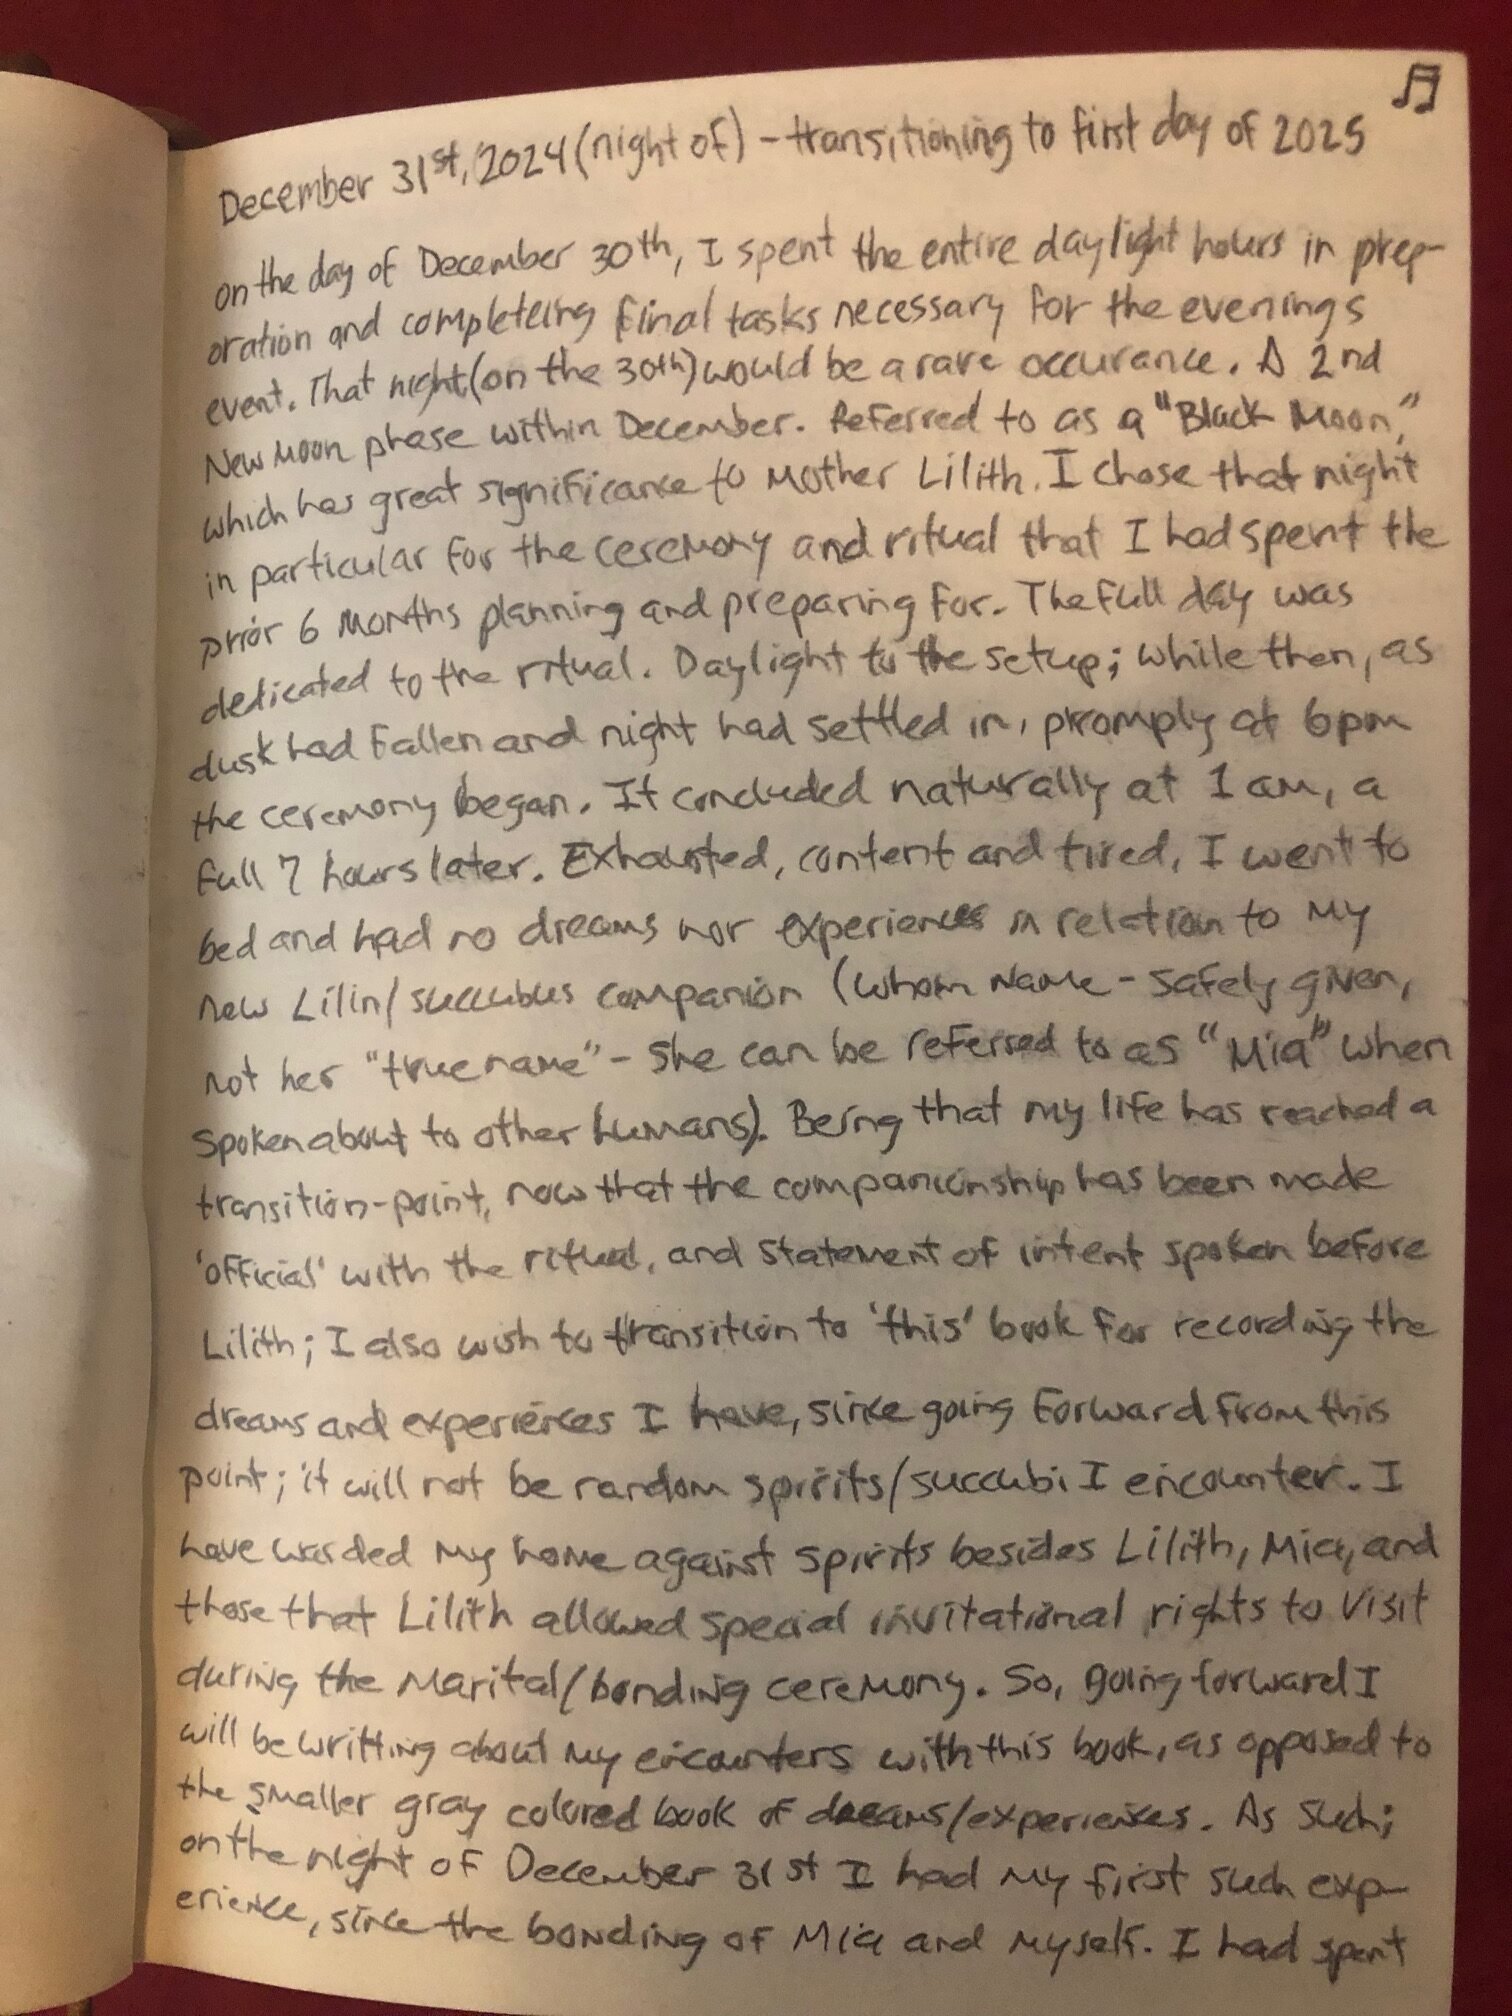 December 31st, 2024 (night of) - transitioning to first day of 2025
on the day of December 30th, I spent the entire daylight hours in prep-
oration and completeing final tasks necessary for the evenings
event. That night (on the 30th) would be a rare occurance. A 2nd
New Moon phase within December. Referred to as a "Black Moon,"
which has great significance to Mother Lilith. I chose that night
in particular for the ceremony and ritual that I had spent the
prior 6 months planning and preparing for. The full day was
dedicated to the ritual. Daylight to the setup; while then, as
dusk had fallen and night had settled in, promply at 6pm
the ceremony began. It concluded naturally at 1 am, a
full 7 hours later. Exhausted, content and tired, I went to
bed and had no dreams nor experiences in relation to my
new Lilin/succubus companion (whom name - safely given,
not her "true name" - she can be referred to as "Mia" when
spoken about to other humans). Being that my life has reached a
transition-point, now that the companionship has been made
'official' with the ritual, and statement of intent spoken before
Lilith; I also wish to transition to 'this' book for recording the
dreams and experiences I have, since going forward from this
point; it will not be random spirits/succubi I encounter. I
have warded my home against spirits besides Lilith, Mia, and
those that Lilith allowed special invitational rights to visit
during the Marital/bonding ceremony. So, going forward I
will be writting about my encounters with this book, as opposed to
the smaller gray colored book of dreams/experiences. As such;
on the night of December 31st I had my first such exp-
erience, since the bonding of Mia and myself. I had spent